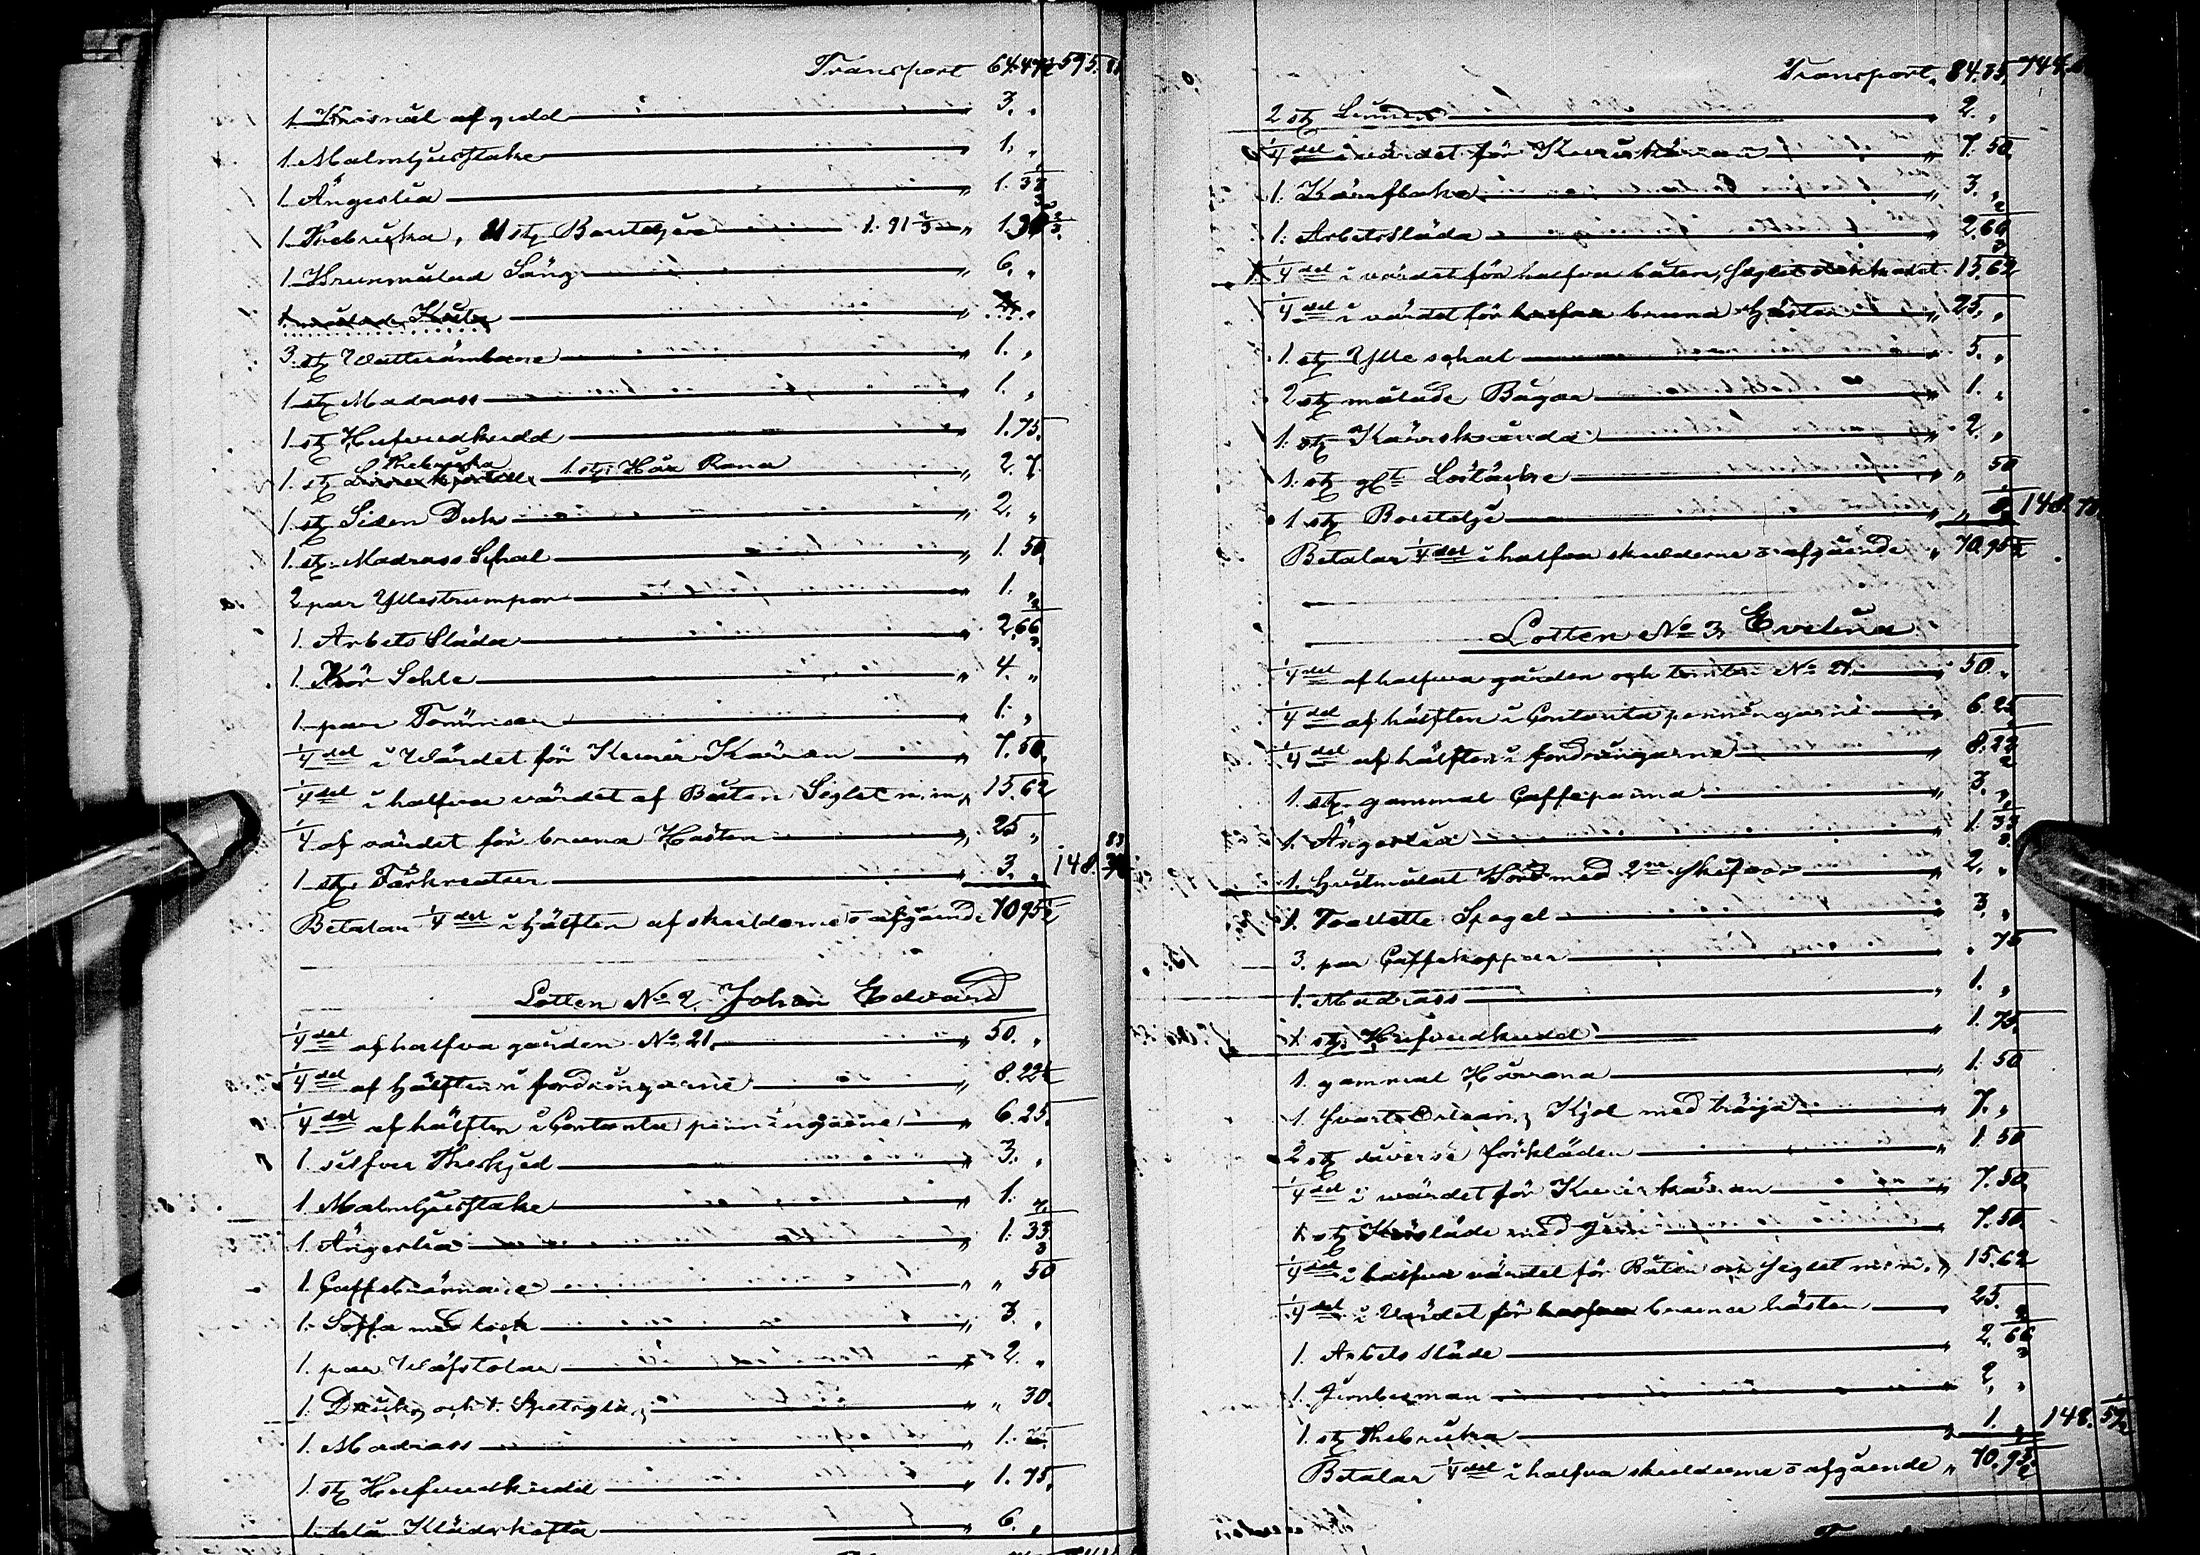 Transport 64.47½ 595.
1. af guld " 3. "
1. Malmljusstake " 1. "
1. Ängeslia " 1.33 1/3
1. Thebricka, 21 st Bouteljer 1.91 2/3 "
1. Brunmålad Säng " 6. "
1. målad Kista
3. st Watten " 1. "
1 st Madrass " 1. "
1 st Hufvudkudd " 1.75.
1. st Thebricka 1 st. Hår Rana " 2. "
1 st Siden Duk " 2. "
1 st. Madrass Schal " 1.50
2 par Yllestrumpor " 1. "
1. Arbets Släda 2.66 2/3
1. Kör Sehle " 4. "
1. par Tömmar " 1. "
¼ del i Wärdet för Kärran " 7.50.
¼ del i halfva värdet af Båten Seglet m.m. 15.62
¼ af värdet för bruna Hästen " 25 "
1 st. " 3. " 148.
Betalar ¼ del i Hälften af skulderne o afgående 70.95½
Lotten No 2. Johan Edvard
¼ del af halfva gården No 21. " 50. "
¼ del af Hälften i fordringarne " 8.22½
¼ del af hälften i Contanta penningarne " 6.25.
1 silfver Theskjed " 3. "
1 Malmljusstake " 1. "
1. Ängeslia " 1.33 1/3
1. Caffebrännare " " 50
1. Soffa med lock " 3. "
1. par Wäfstolar " 2. "
1. och 1. " 30.
1. Madrass " 1.
1. st Hufvudkudd " 1.75.
1. blå Klädskofta " 6. "
Transport. 84.35, 744.
2 st 2. "
¼ del i värdet för Kärran " 7.50.
1. " 3. "
1. Arbetssläda " 2.66 2/3
¼ del i värdet för halfva båten, Seglet 15.62
¼ del i värdet för halfva bruna Hästen " 25. "
1. st Ylle schal " 5. "
2 st målade Bågar " 1. "
1. st " 2. "
1. st gl. Löstäcke " " 50
1 st Boutelje " " 148.
Betalar ¼ del i halfva skulderne o afgående " 70.95½
Lotten No 3. Evelina
¼ del af halfva gården och tomten No 21. " 50. "
¼ del af hälften i Contanta penningarne " 6.25
¼ del af hälften i fordringarne " 8.22½
1 st. gammal Caffepanna " 3. "
1. Ängeslia " 1.33 1/3
1. Gulmålat Bord med 2ne Skifvor " 2. "
1. Toallette Spegel " 3. "
3. par Caffekoppar " 75
1. Madrass " 1. "
1 st. Hufvudkudd 1.75.
1. gammal Hårrana " 1.50
1 Svart Orleans Kjol med tröija " 7. "
2 st diverse förkläden " 1.50
¼ del i wärdet för kärran " 7.50.
1 st Körsläde med " 7.50.
¼ del i halfva värdet för Båten och Seglet m.m. " 15.62
¼ del i Värdet för halfva bruna hästen " 25.
1. Arbets Släde " 2.66 2/3
1. Jernbesman " 2. "
1. st Thebricka " 1. " 148.
Betalar ¼ del i halfva skulderne o afgående " 70.95½